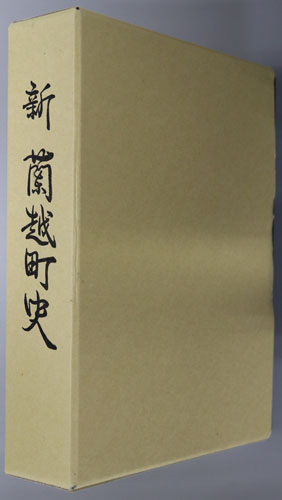 新 蘭越町史